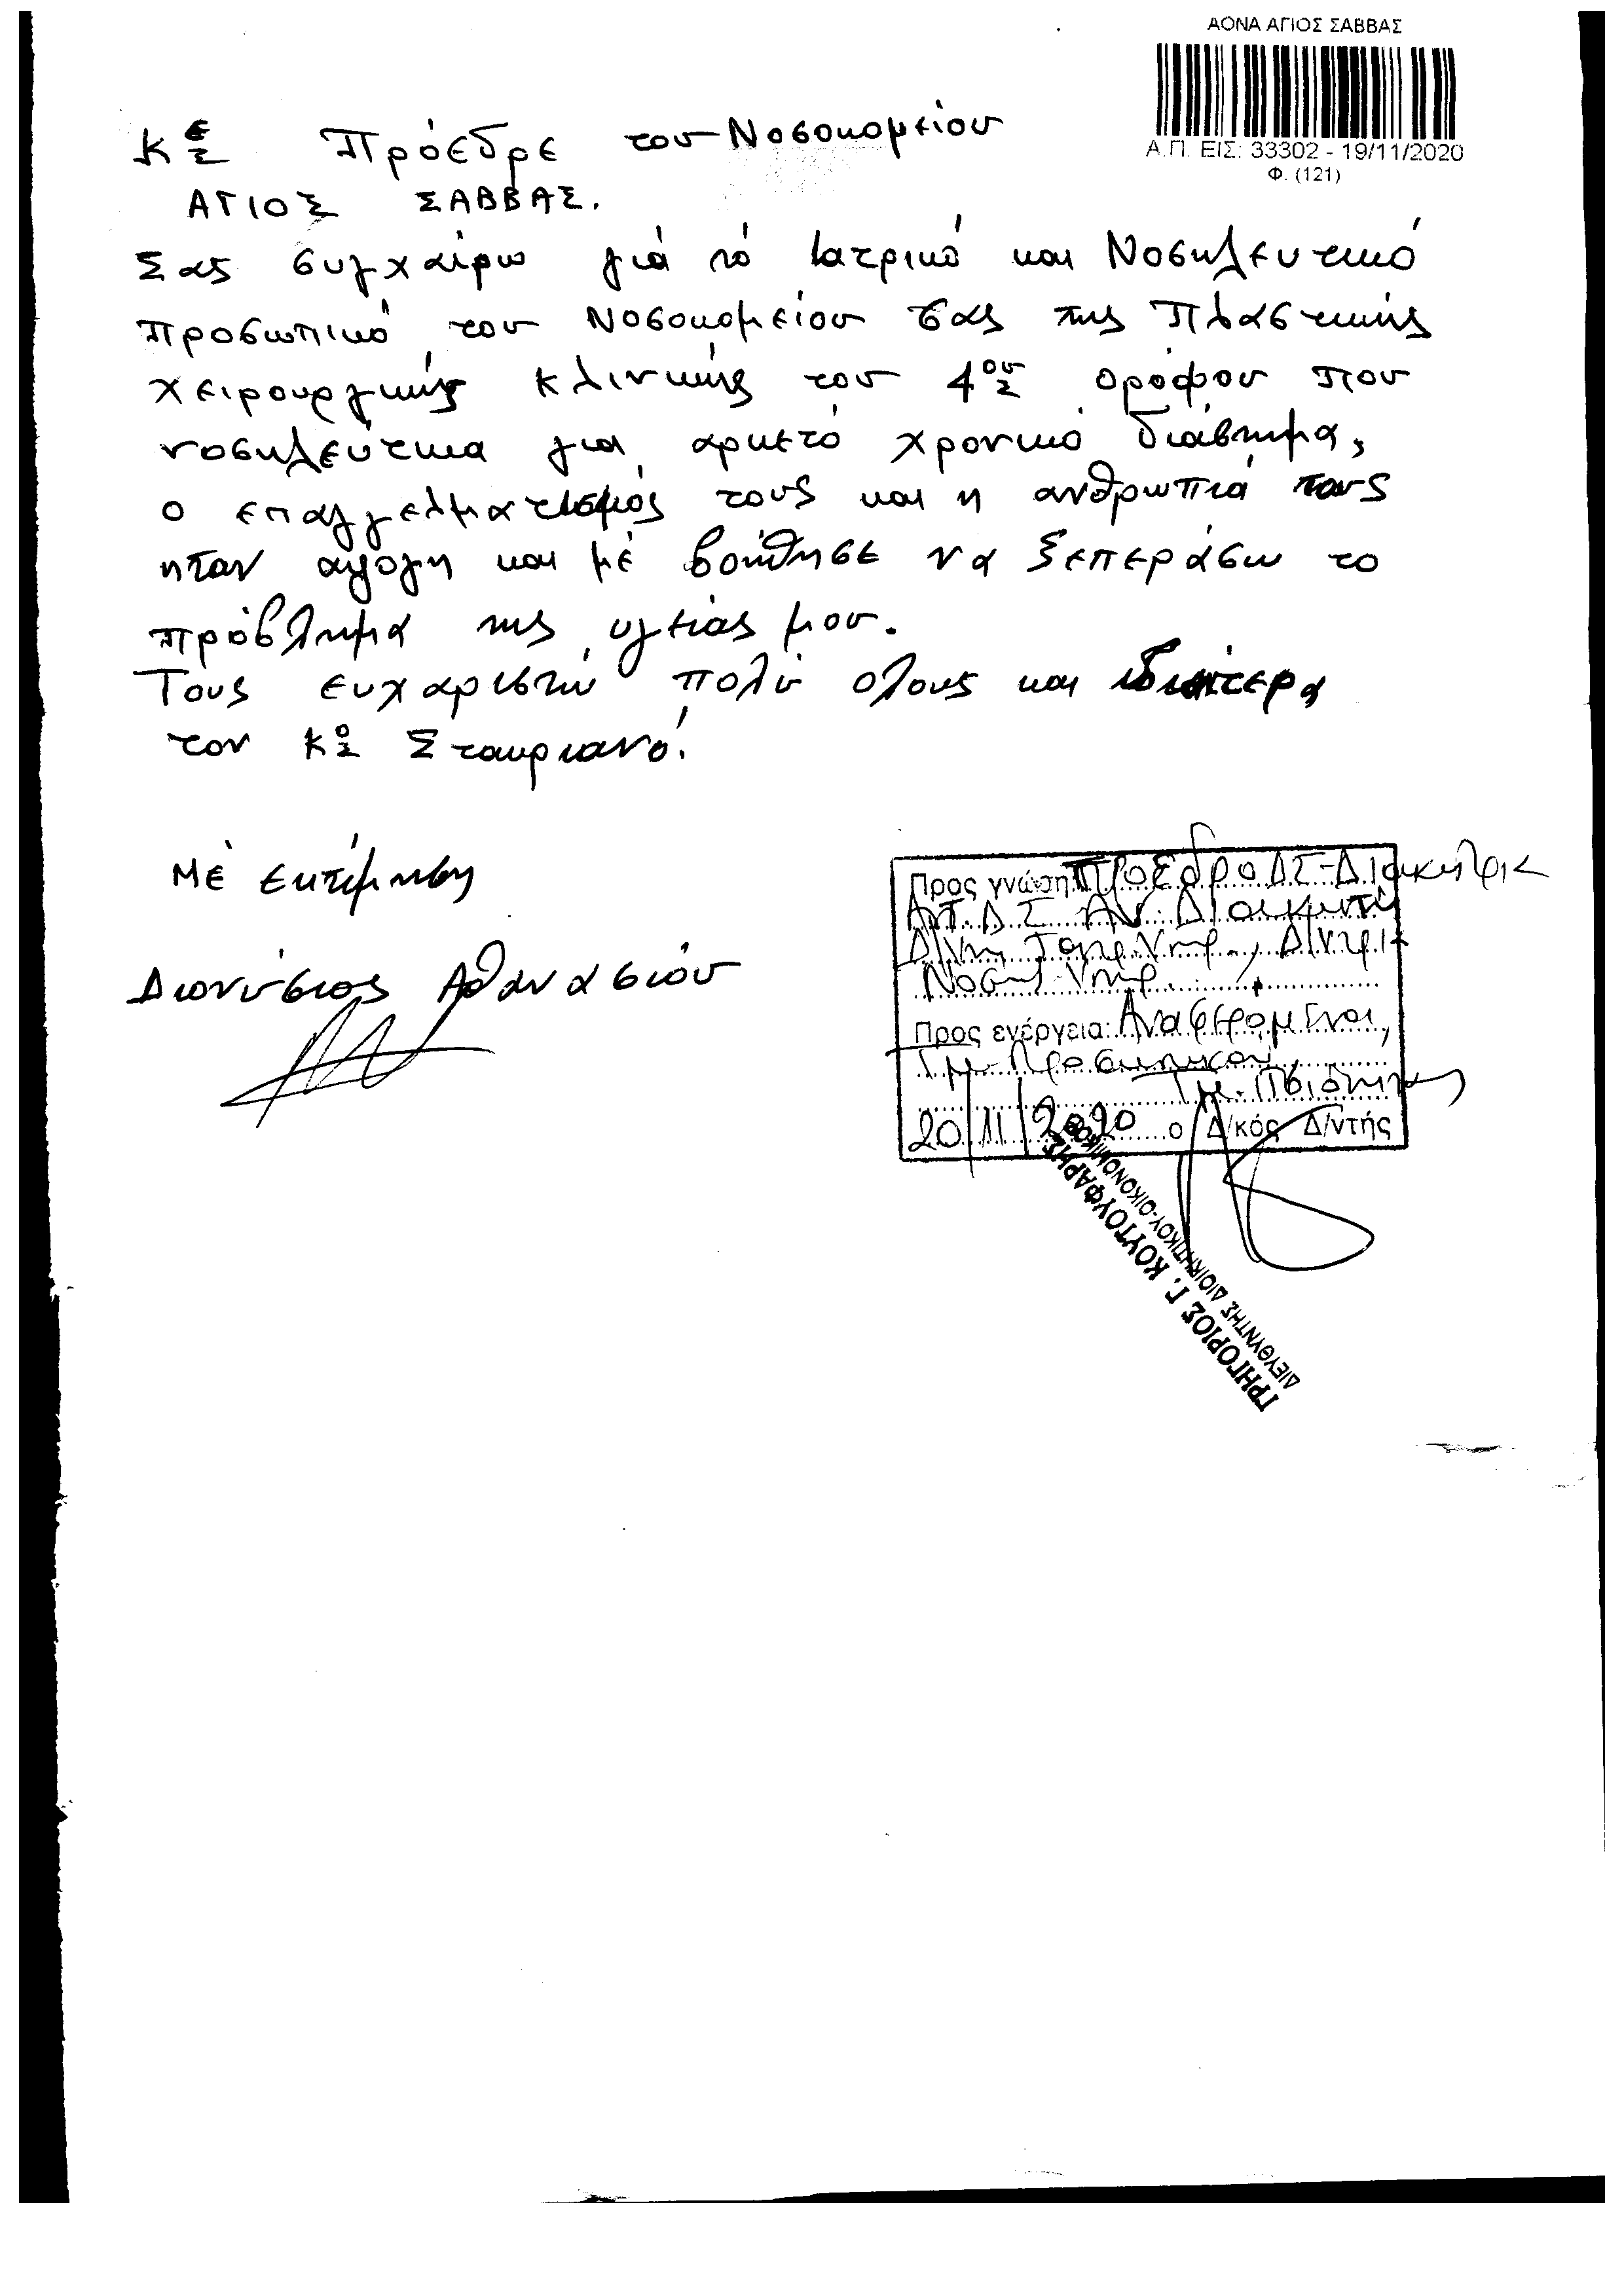 ΑΟΝΑ ΑΓΙΟΣ ΣΑΒΒΑΣ
Α.Π. ΕΙΣ: 33302 - 19/11/2020
Φ. (121)
Κε Πρόεδρε του Νοσοκομείου
ΑΓΙΟΣ ΣΑΒΒΑΣ.
Σας συγχαίρω γιά τό Ιατρικό και Νοσηλευτικό
προσωπικό του Νοσοκομείου σας της Πλαστικής
χειρουργικής κλινικής του 4ου ορόφου που
νοσηλεύτικα για αρκετό χρονικό διάστημα,
ο επαγγελματισμός τους και η ανθρωπιά τους
ηταν αψογη και μέ βοήθησε να ξεπεράσω το
πρόβλημα της υγείας μου.
Τους ευχαριστώ πολύ ολους και ιδιαίτερα
τον Κο Σταυριανό.
Μέ εκτίμηση
Διονύσιος Αθανασίου
Προς γνώση: ΠροεδροΔΣ-Διοικητρια
ΑΠ.Δ.Σ ΑΝ. Διοικητή
Νοσ. Υπηρ.
Προς ενέργεια: Αναφερόμενοι,
Τμ. Προσωπικού,
Τμ. Ποιότητας
20/11/2020 ο Δ/κός Δ/ντής
ΓΡΗΓΟΡΙΟΣ Γ. ΚΟΥΤΟΥΦΑΡΗΣ
ΔΙΕΥΘΥΝΤΗΣ ΔΙΟΙΚΗΤΙΚΟΥ-ΟΙΚΟΝΟΜΙΚΟΥ